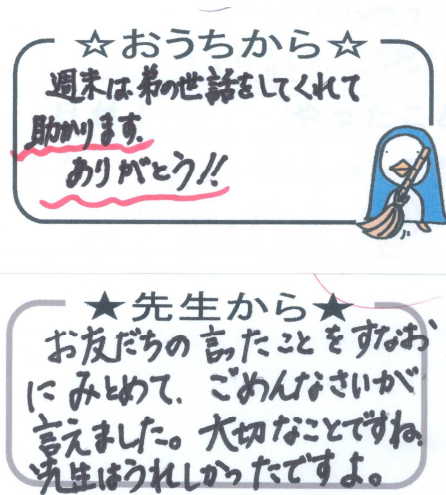 ☆おうちから☆
週末は弟の世話をしてくれて
助かります。
ありがとう!!
★先生から★
お友だちの言ったことをすなお
にみとめて、ごめんなさいが
言えました。大切なことですね。
先生はうれしかったですよ。